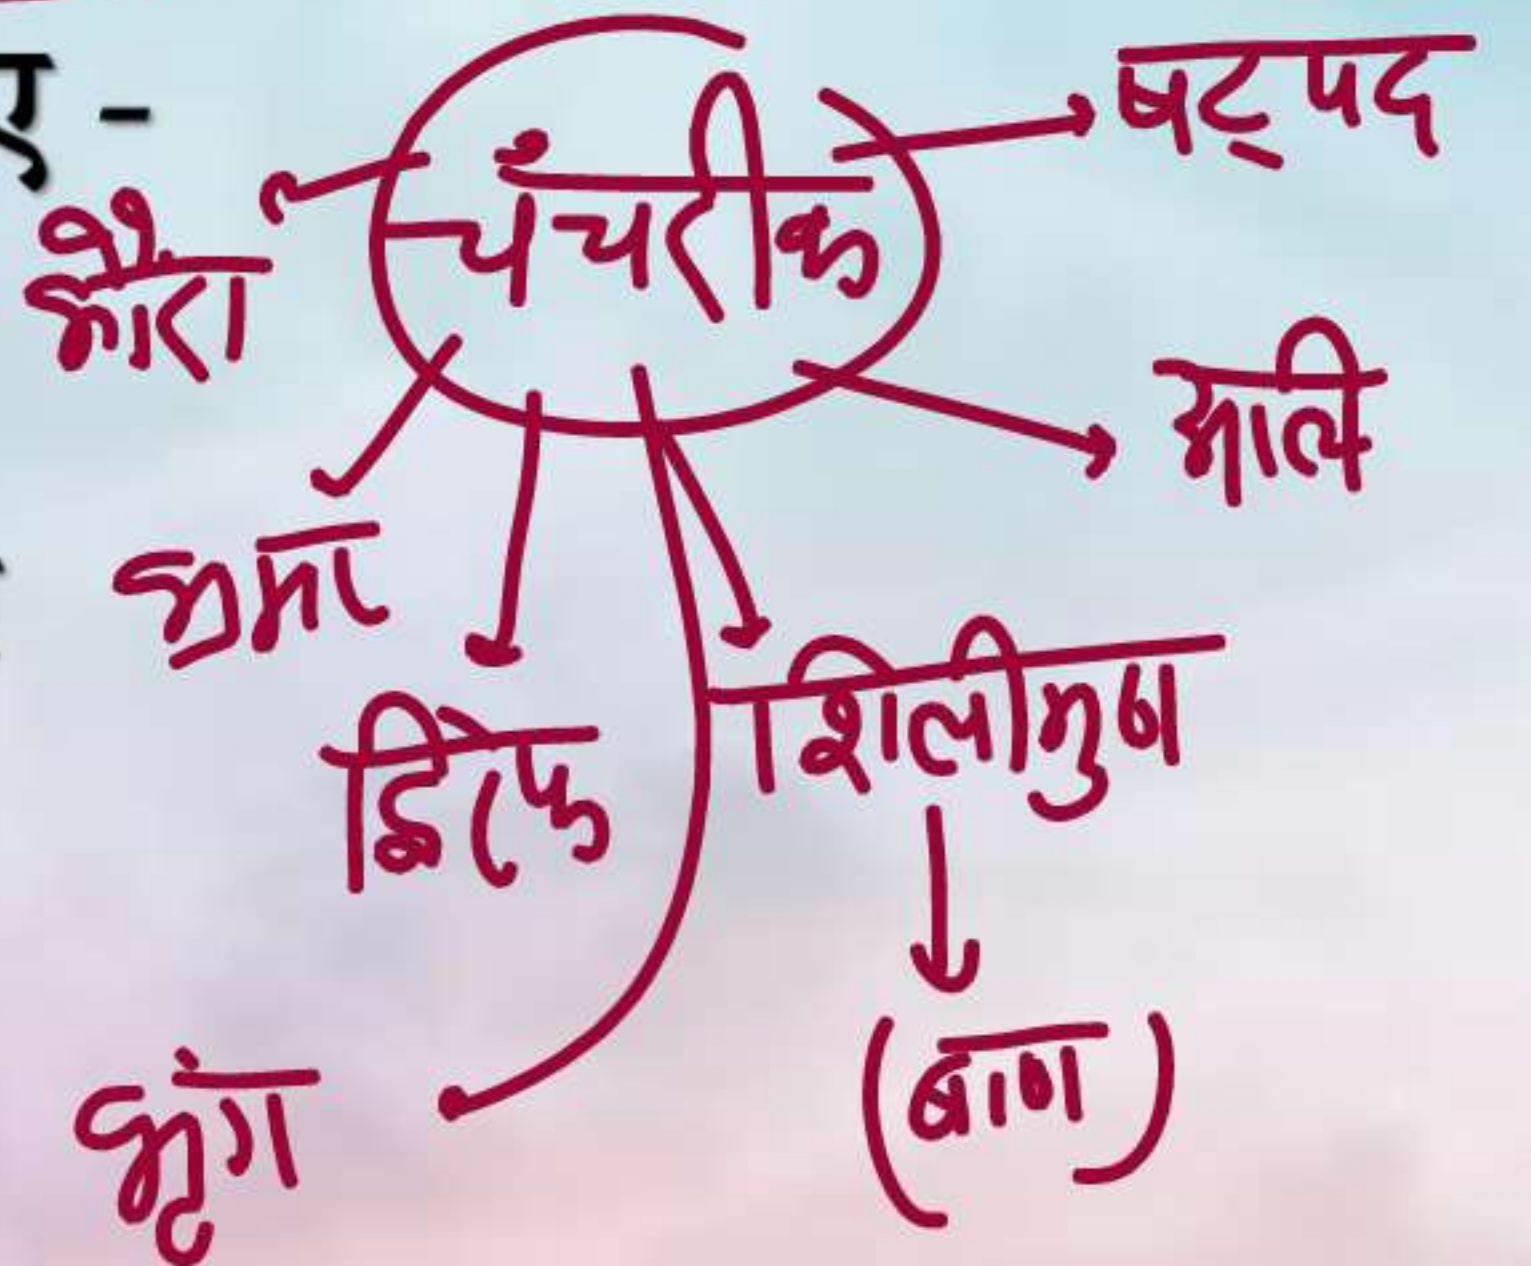 ए -
चंचरीक
षट्पद
भौंरा
अलि
भ्रमर
द्विरेफ
शिलीमुख
(बाण)
भृंग